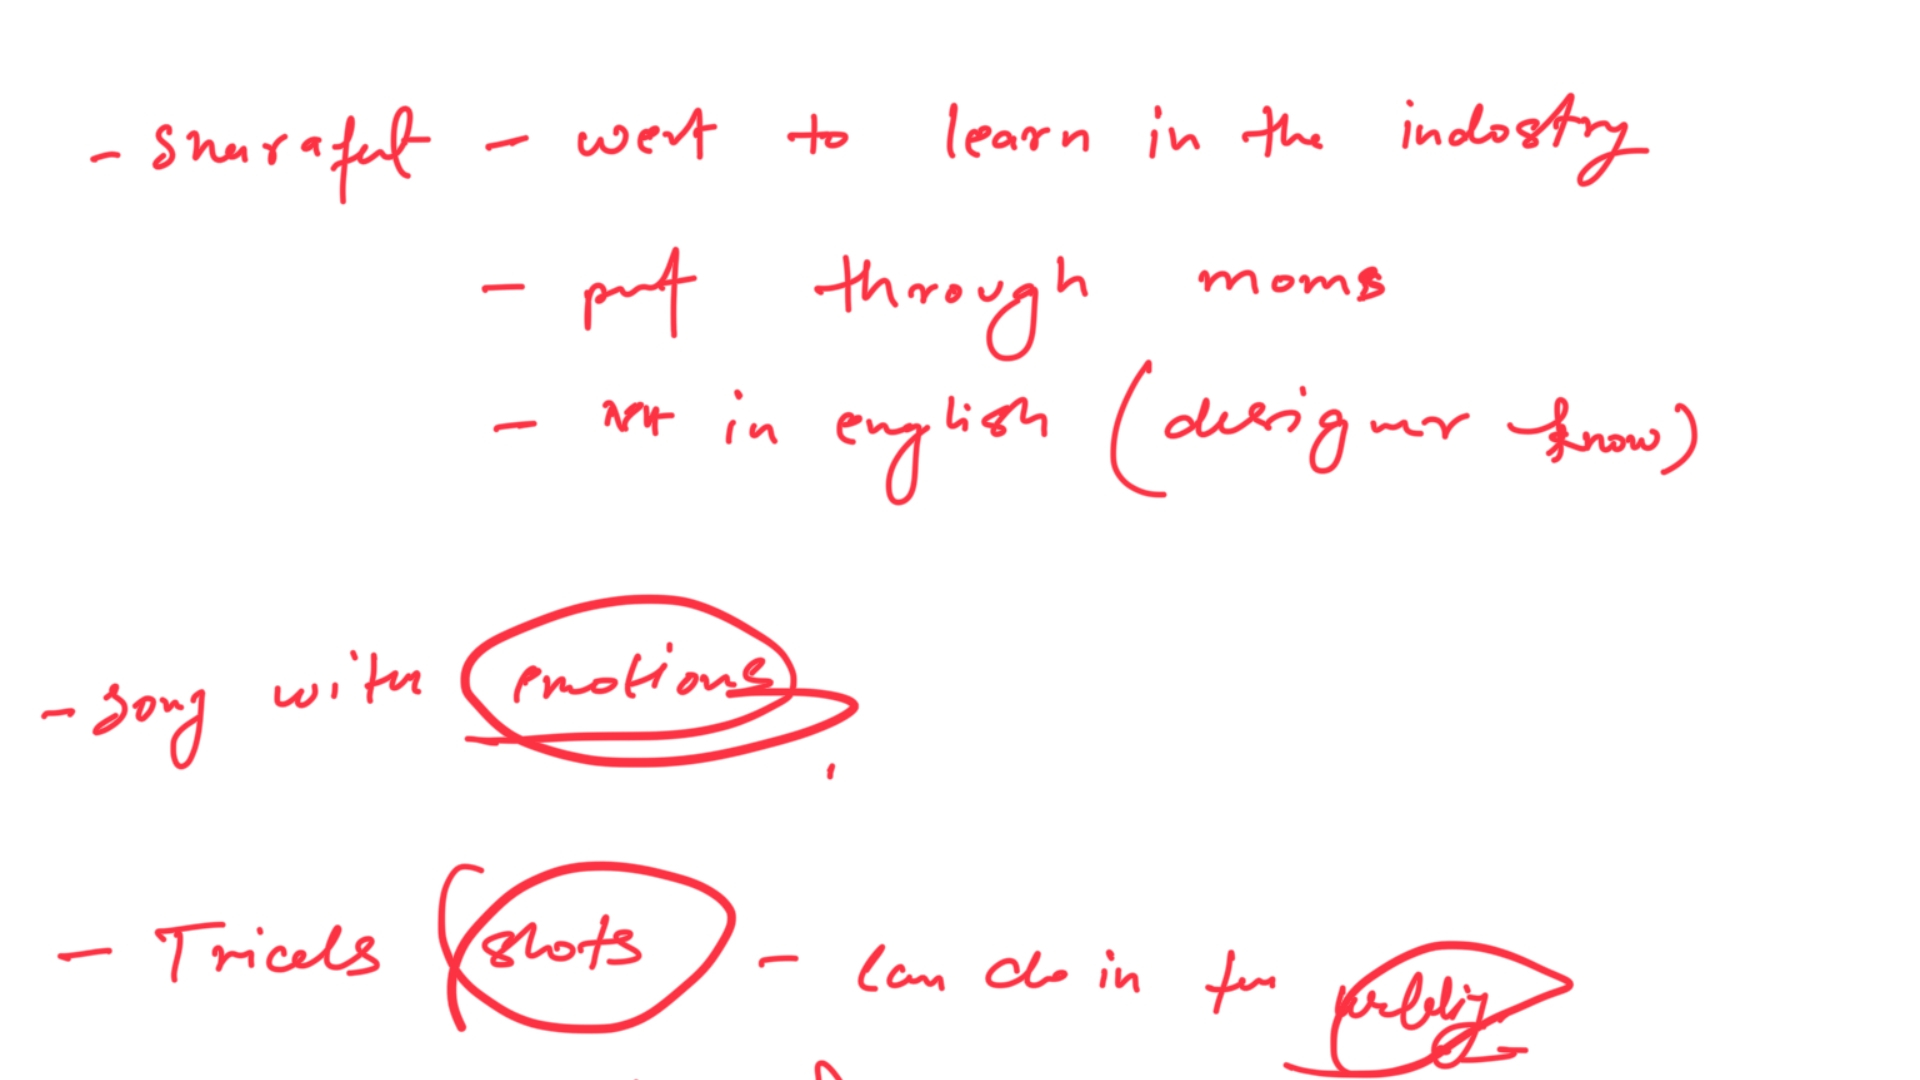 - snuraful - went to learn in the indostry
- put through moms
- not in english (designer know)
- song with emotions
- Tricks (shots - can do in the